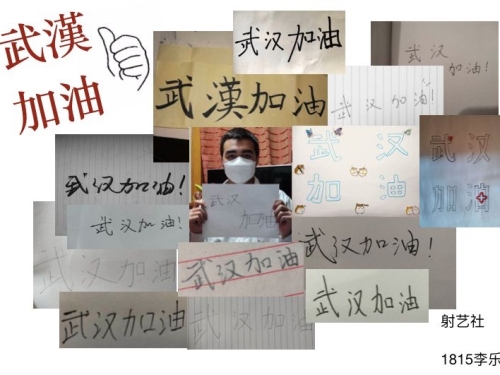 武漢
加油
武汉加油
武汉
加油!
武漢加油
武汉加油!
武汉加油!
武汉
加油
武汉
加油
武汉
加油
武汉加油!
武汉加油
武汉加油
武汉加油!
武汉加油
武汉加油
武汉加油
射艺社
1815李乐